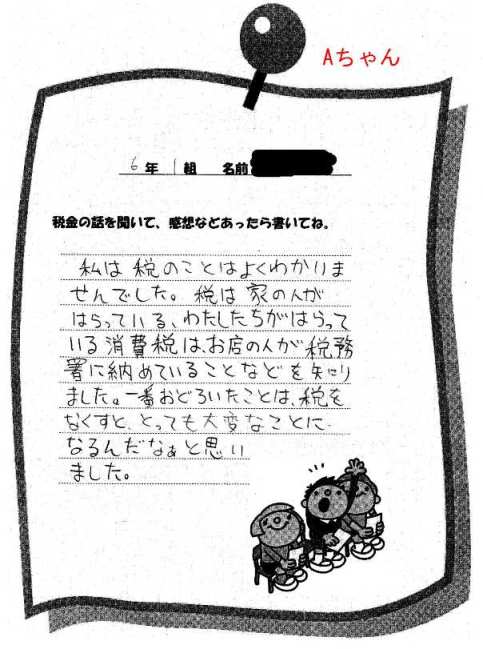 Aちゃん
6年 1組 名前
税金の話を聞いて、感想などあったら書いてね。
私は税のことはよくわかりま
せんでした。税は家の人が
はらっている、わたしたちがはらって
いる消費税は、お店の人が税務
署に納めていることなどを知り
ました。一番おどろいたことは、税を
なくすと、とっても大変なことに
なるんだなぁと思い
ました。